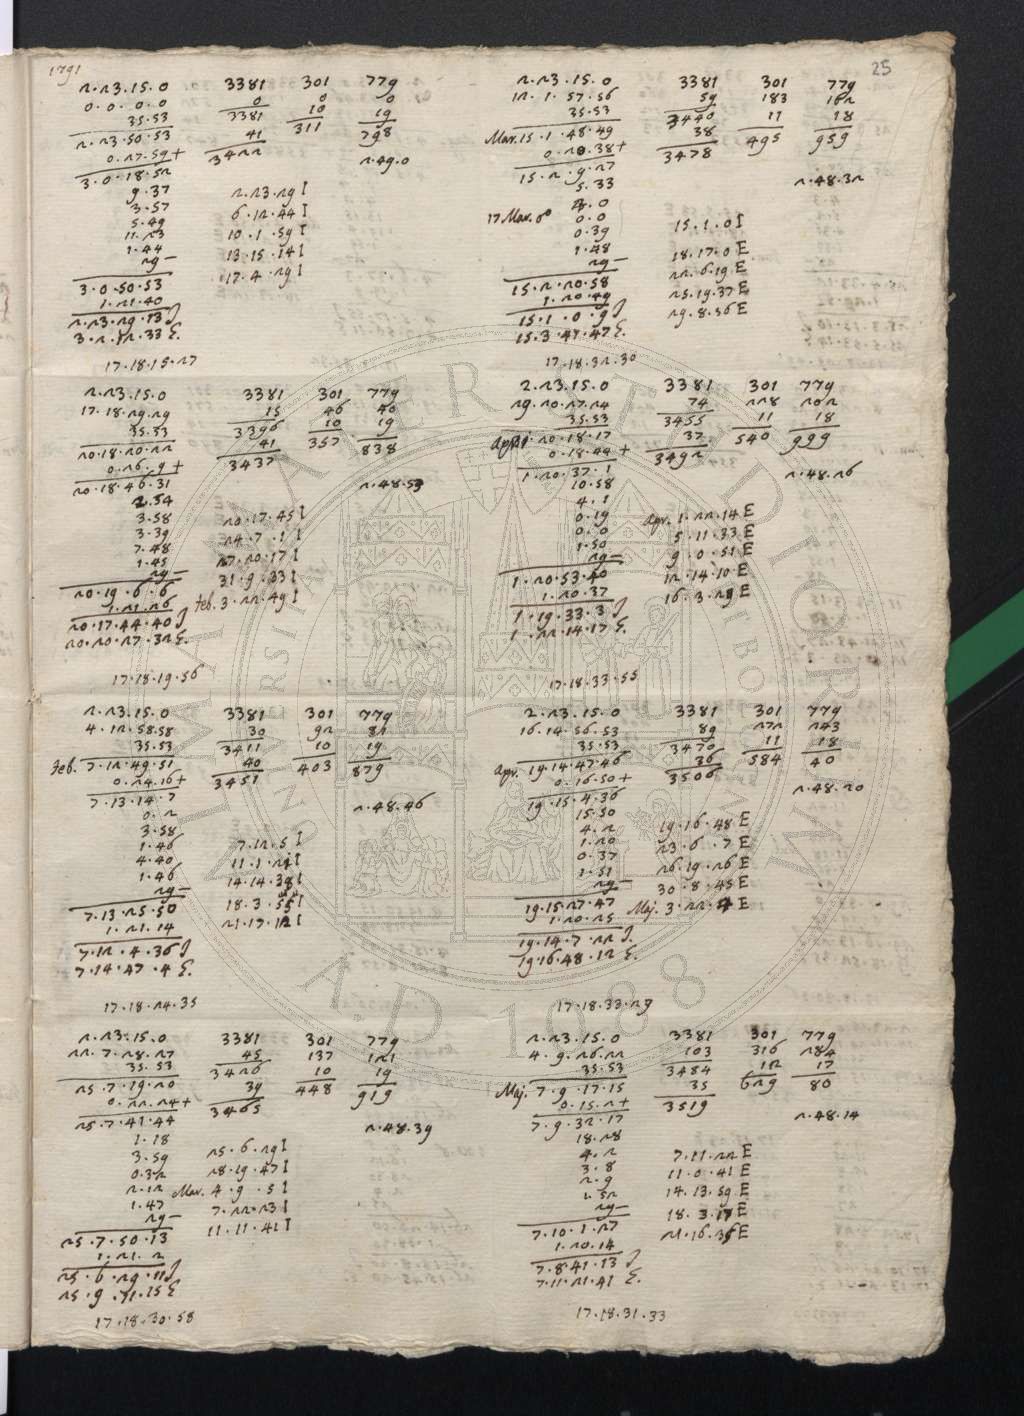 1791
25
2.23.15.0 3381 301 779
0.0.0.0 0 0 0
35.53 3381 10 19
2.23.50.53 41 311 798
0.27.59+ 3422 2.49.0
3.0.18.52
9.37
3.57 2.23.29 I
5.49 6.12.44 I
11.23 10.1.59 I
1.44 13.15.14 I
29− 17.4.29 I
3.0.50.53
1.21.40
2.23.29.13 J
3.2.12.33 E.
17.18.15.27
2.23.15.0 3381 301 779
17.18.29.29 15 46 40
35.53 3396 10 19
20.18.20.22 41 357 838
0.26.9+ 3437
20.18.46.31 2.48.53
2.54
3.58 20.17.45 I
3.39 24.7.1 I
7.48 27.20.17 I
1.45 31.9.33 I
29− feb. 3.22.49 I
20.19.6.6
1.21.26
20.17.44.40 J
20.20.27.32 E.
17.18.19.56
2.23.15.0 3381 301 779
4.12.58.58 30 92 81
35.53 3411 10 19
feb. 7.12.49.51 40 403 879
0.24.16+ 3451
7.13.14.7 2.48.46
0.2
3.58
1.46 7.12.5 I
4.40 11.1.21 I
1.46 14.14.38 I
29− 18.3.55 I
7.13.25.50 21.17.12 I
1.21.14
7.12.4.36 J
7.14.47.4 E.
17.18.24.35
2.23.15.0 3381 301 779
22.7.28.27 45 137 121
35.53 3426 10 19
25.7.19.20 39 448 919
0.22.24+ 3465
25.7.41.44 2.48.39
1.18
3.59 25.6.29 I
0.32 28.19.47 I
2.12 Mar. 4.9.5 I
1.47 7.22.23 I
29− 11.11.41 I
25.7.50.13
1.21.2
25.6.29.11 J
25.9.11.15 E
17.18.30.58
2.23.15.0 3381 301 779
12.1.57.56 59 183 182
35.53 3440 11 18
Mar. 15.1.48.49 38 495 959
0.20.38+ 3478
15.2.9.27 2.48.32
5.33
4.0
17 Mar. 0.0 15.1.0 I
0.39
1.48 18.17.0 E
29− 22.6.19 E
15.2.20.58 25.19.37 E
1.20.49 29.8.56 E
15.1.0.9 J
15.3.47.47 E.
17.18.32.30
2.23.15.0 3381 301 779
29.20.27.24 74 228 202
35.53 3455 11 18
April 1.20.18.17 37 540 999
0.18.44+ 3492
1.20.37.1 2.48.26
10.58
4.1
0.19 Apr. 1.22.14 E
0.0 5.11.33 E
1.50 9.0.51 E
29− 12.14.10 E
1.20.53.40 16.3.29 E
1.20.37
1.19.33.3 J
1.22.14.17 E.
17.18.33.55
2.23.15.0 3381 301 779
16.14.56.53 89 272 243
35.53 3470 11 18
Apr. 19.14.47.46 36 584 40
0.16.50+ 3506
19.15.4.36 2.48.20
15.50
4.2 19.16.48 E
1.20 23.6.7 E
0.37 26.19.26 E
1.51 30.8.45 E
29− Maj. 3.22.4 E
19.15.27.47
1.20.25
19.14.7.22 J.
19.16.48.12 E.
17.18.33.29
2.23.15.0 3381 301 779
4.9.26.22 103 316 284
35.53 3484 12 17
Maj. 7.9.17.15 35 629 80
0.15.2+ 3519
7.9.32.17 2.48.14
18.28
4.2 7.11.22 E
3.8 11.0.41 E
2.9 14.13.59 E
1.52 18.3.17 E
29− 21.16.35 E
7.10.1.27
1.20.14
7.8.41.13 J
7.11.21.41 E.
17.18.31.33